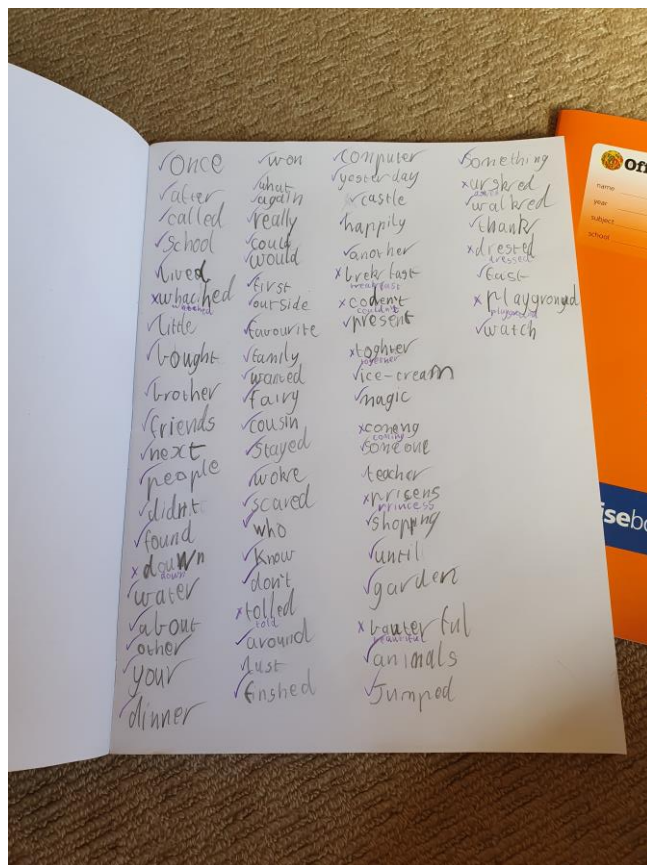 ✓once
✓after
✓called
✓school
✓lived
xwhacihed
watched
✓little
✓bought
✓brother
✓friends
✓next
✓people
✓didn't
✓found
x douwn
down
✓water
✓about
✓other
✓your
✓dinner
✓won
✓what
✓again
✓really
✓could
✓would
✓first
✓outside
✓favourite
✓family
✓wanted
✓fairy
✓cousin
✓stayed
✓woke
✓scared
✓who
✓know
✓don't
x tolled
told
✓around
✓just
✓finshed
✓computer
✓yesterday
✓castle
✓happily
✓another
xbrekrfast
breakfast
xcoden't
couldn't
✓present
xtoghter
together
✓ice-cream
✓magic
xconeng
coming
✓someone
teacher
xprisens
princess
✓shopping
✓until
✓garden
x bauterful
beautiful
✓animals
✓Jumped
✓something
xurskred
asked
✓walkred
✓thank
xdrested
dressed
✓fast
x playgronged
playground
✓watch
Off
name
year
subject
school
isebo